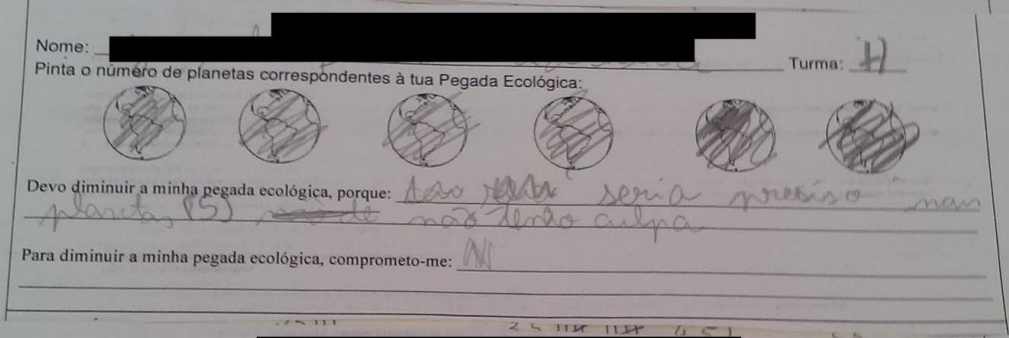 Nome:
Turma: H
Pinta o número de planetas correspondentes à tua Pegada Ecológica:
Devo diminuir a minha pegada ecológica, porque: seria preciso mais
planetas (5) não tenho culpa
Para diminuir a minha pegada ecológica, comprometo-me: N